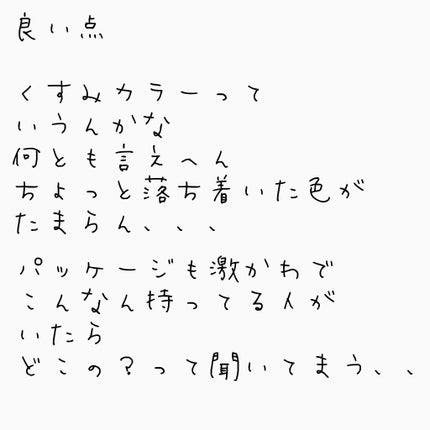 良い点
くすみカラーって
いうんかな
何とも言えへん
ちょっと落ち着いた色が
たまらん、、、
パッケージも激かわで
こんなん持ってる人が
いたら
どこの？って聞いてまう、、